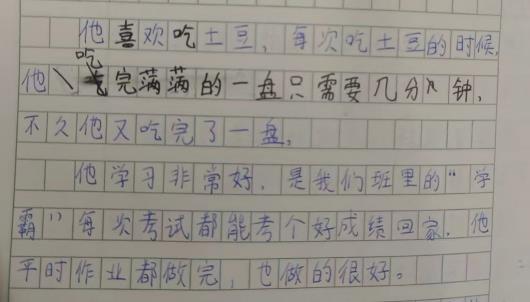 他喜欢吃土豆，每次吃土豆的时候，
他吃完满满的一盘只需要几分钟，
不久他又吃完了一盘。
他学习非常好，是我们班里的“学
霸”每次考试都能考个好成绩回家．他
平时作业都做完，也做的很好。